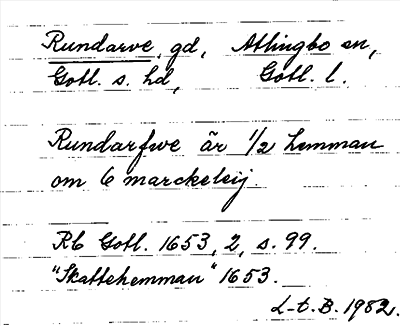 Rundarve gd, Atlingbo sn,
Gotl. s. hd, Gotl. l.
Rundarfwe är 1/2 hemman
om 6 marckeleij.
Rb Gotl. 1653, 2, s. 99.
"Skattehemman" 1653.
L-t. B. 1982.